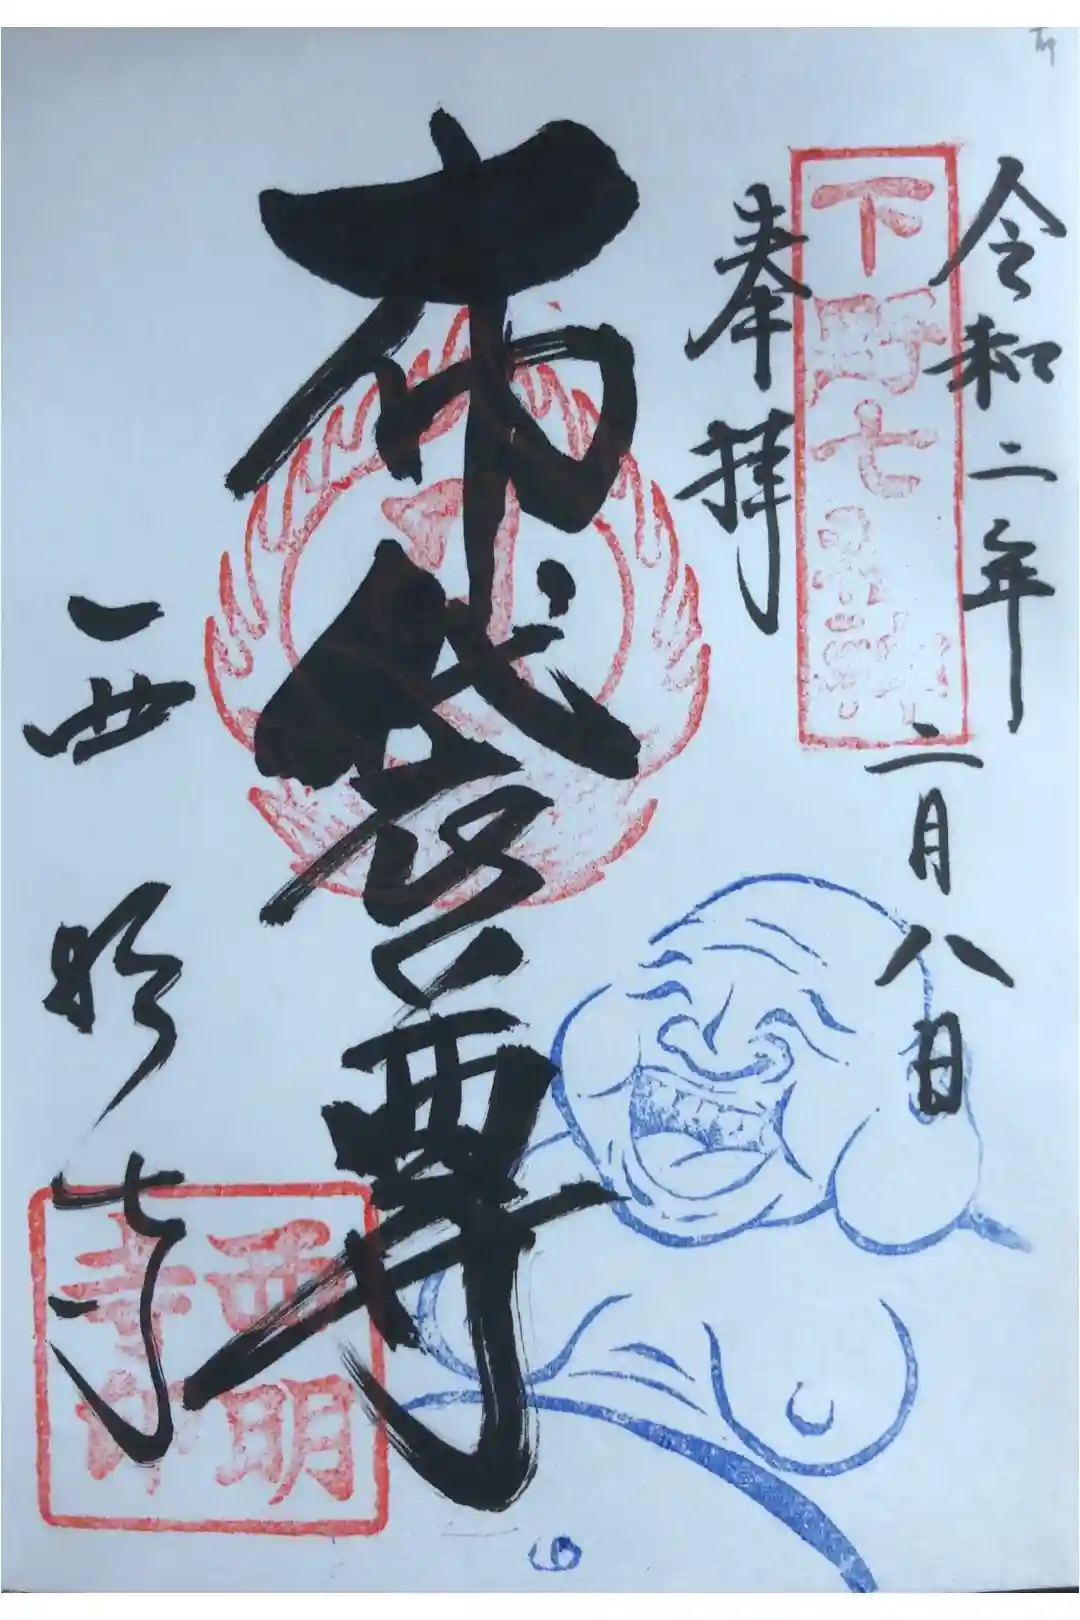 令和二年二月八日
下野七福神
奉拝
布袋尊
西明寺
西明寺印